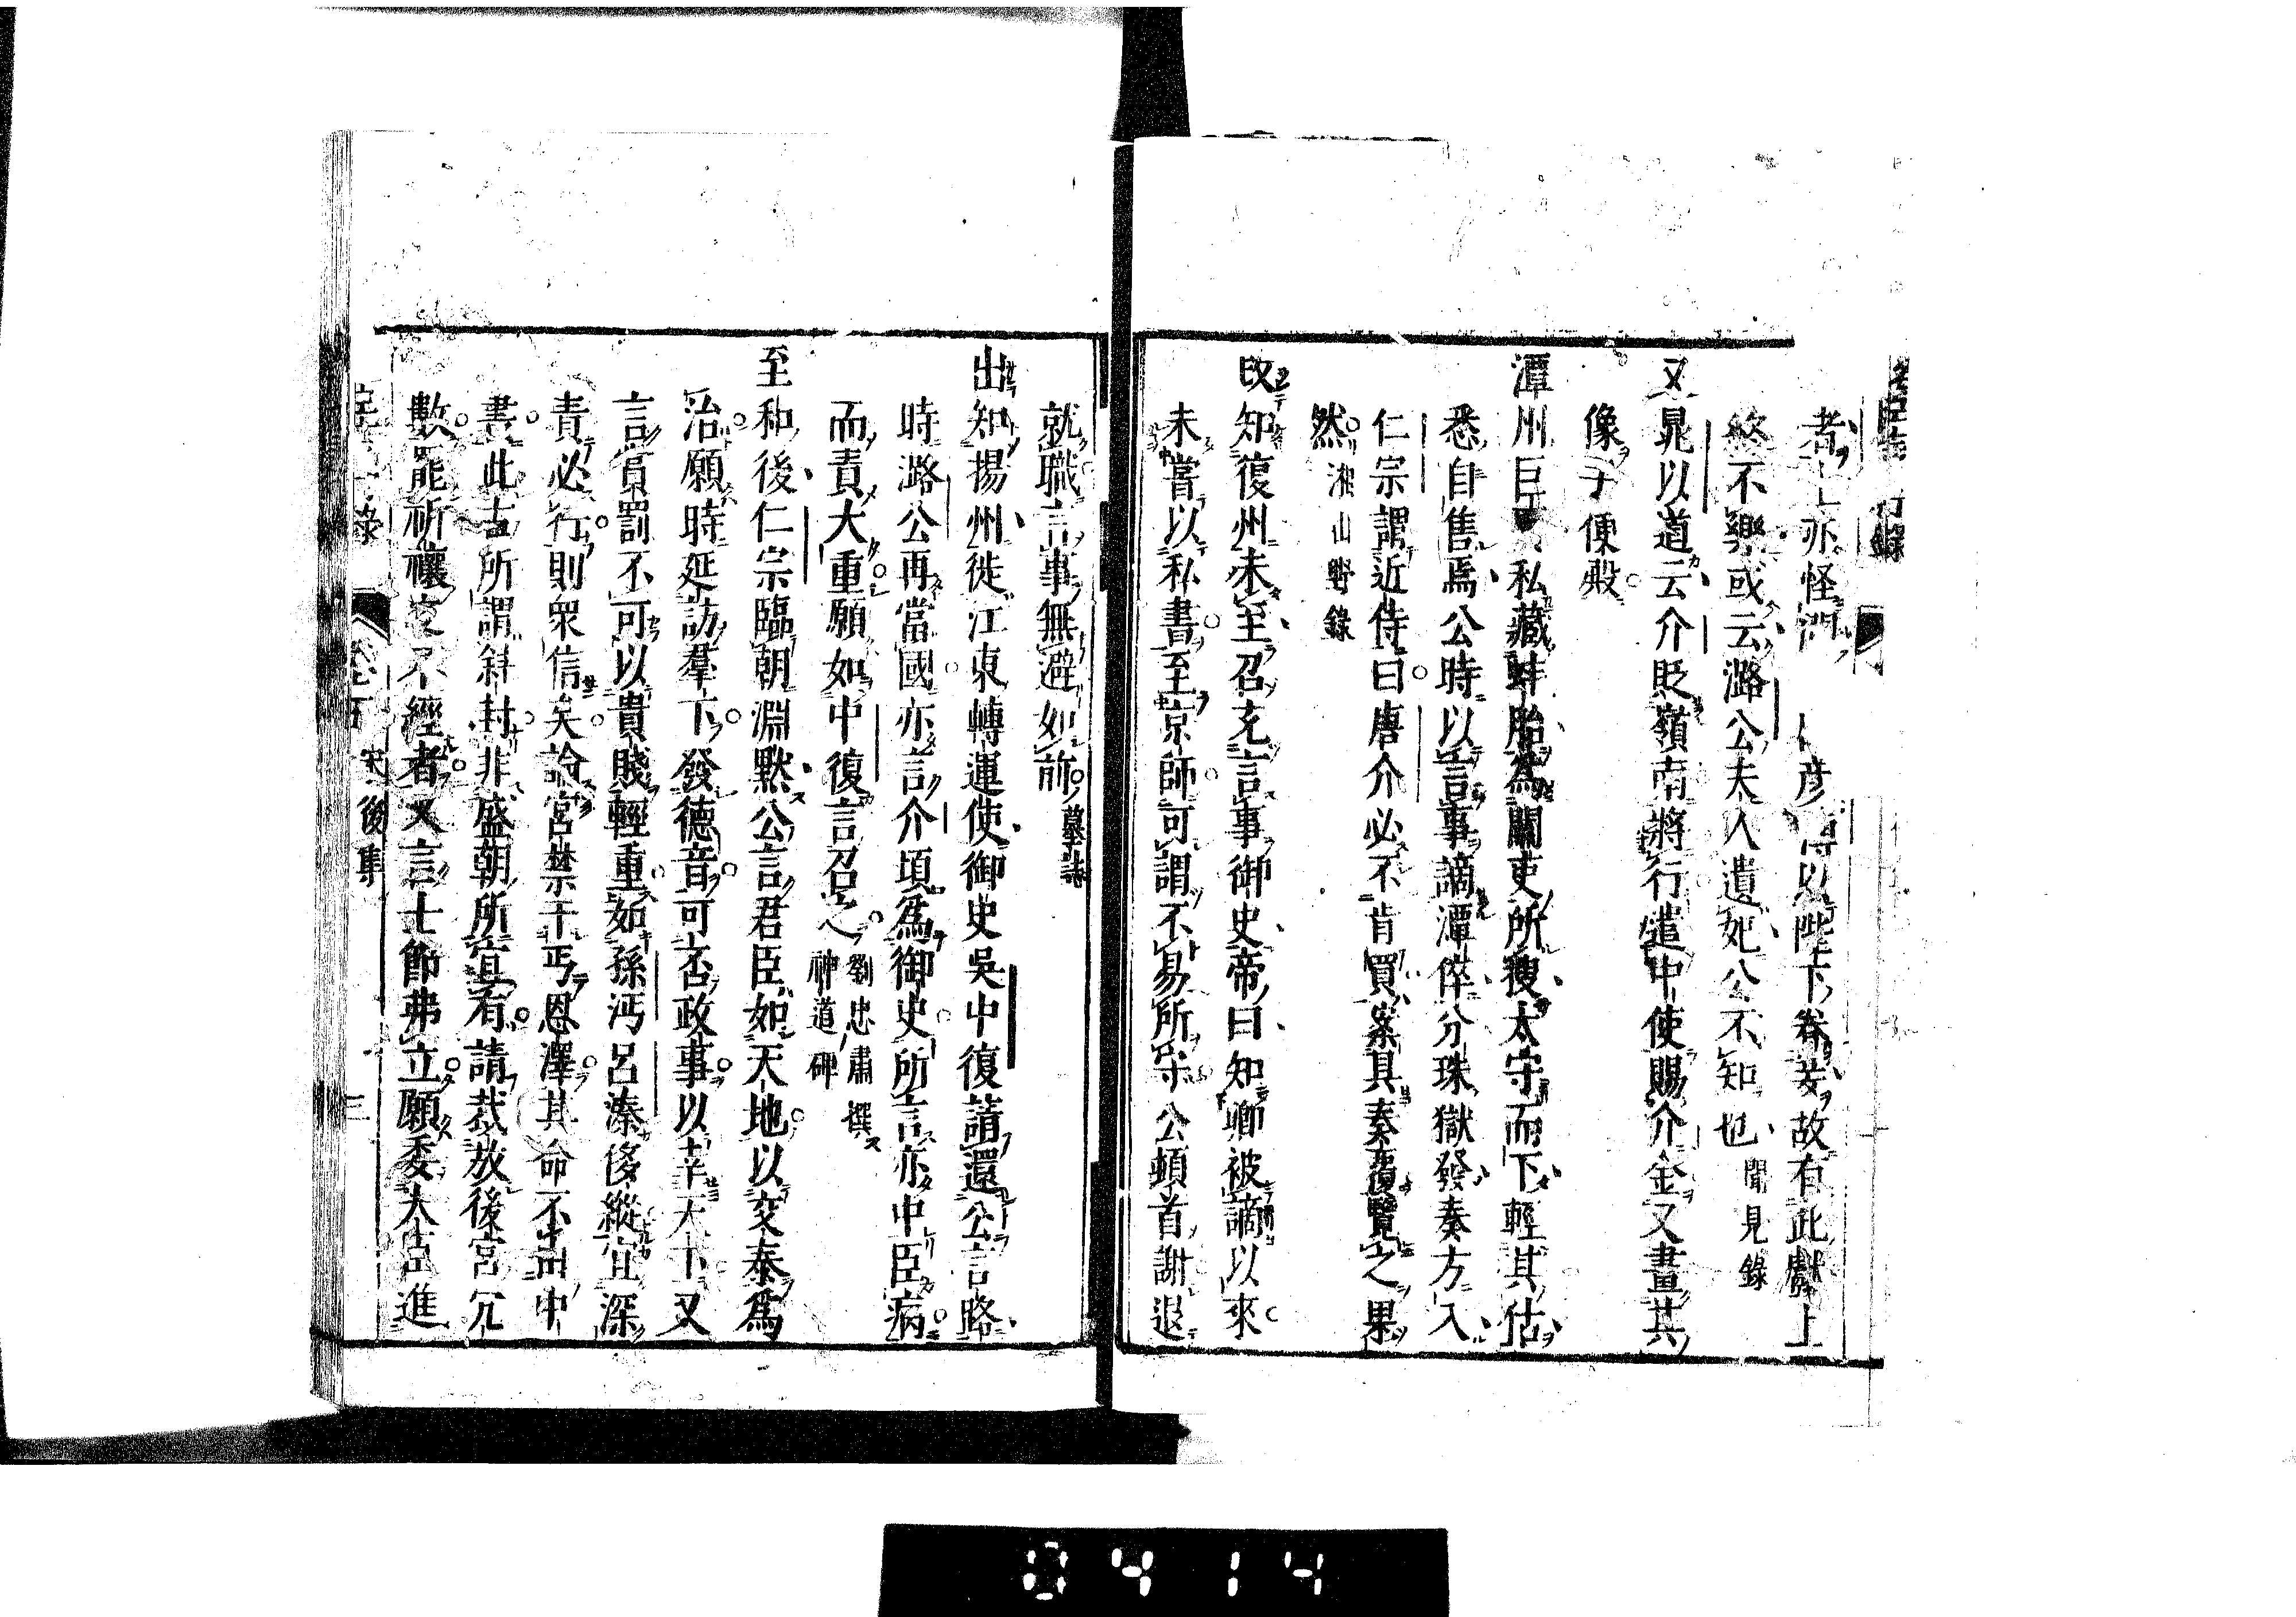 名臣言行錄
者上亦怪問 彦博以陛下眷妾故有此獻上
終不樂或云潞公夫人遺妃公不知也聞見錄
又晁以道云介貶嶺南將行遣中使賜介金又畫其
像于便殿
潭州巨 私藏蚌胎為關吏所搜太守而下輕其估
悉自售焉公時以言事謫潭倅分珠獄發奏方入
仁宗謂近侍曰唐介必不肯買案具奏覆覽之果
然湘山野錄
改知復州未至召充言事御史帝曰知卿被謫以來
未嘗以私書至京師可謂不易所守公頓首謝退
就職言事無避如前墓誌
出知揚州徙江東轉運使御史吳中復請還公言路
時潞公再當國亦言介頃為御史所言亦中臣病
而責大重願如中復言召之劉忠肅撰神道碑
至和後仁宗臨朝淵默公言君臣如天地以交泰為
治願時延訪羣下發德音可否政事以幸天下又
言賞罰不可以貴賤輕重如孫沔呂溱侈縱宜深
責必行則衆信矣論宮禁干丐恩澤其命不由中
書此古所謂斜封非盛朝所宜有請裁放後宮冗
數罷祈禳 不經者又言士節弗立願委大臣進
錄 卷五 宋後集 三
0414